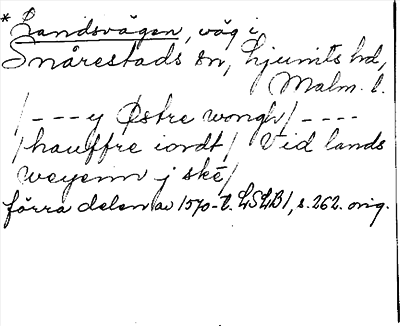 * Landsvägen, väg i
Snårestads sn, Ljunits hd,
Malm. l.
/ - - - y Østre wongh / - - - -
/ hauffre iordt / Vid lands
weyenn j ske /
förra delen av 1570-t. LSLB1, s. 262. orig.